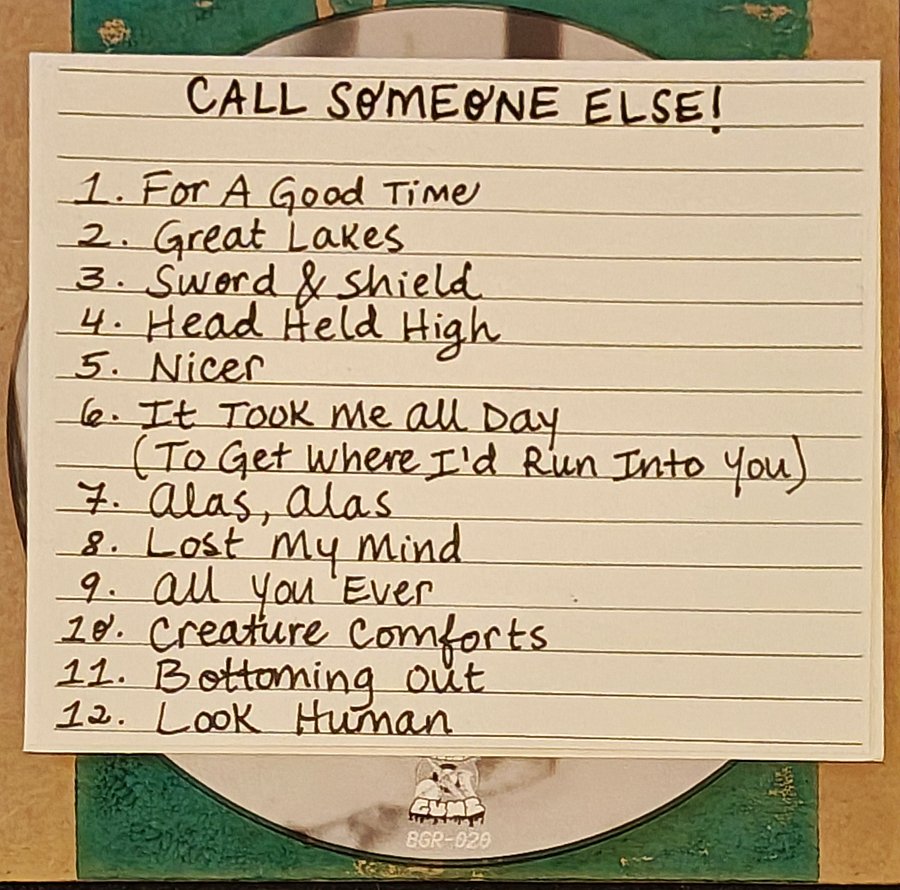 CALL SOMEONE ELSE!
1. For A Good Time
2. Great Lakes
3. Sword & Shield
4. Head Held High
5. Nicer
6. It Took Me All Day
(To Get Where I'd Run Into You)
7. Alas, Alas
8. Lost My Mind
9. All You Ever
10. Creature Comforts
11. Bottoming Out
12. Look Human
BGR-020